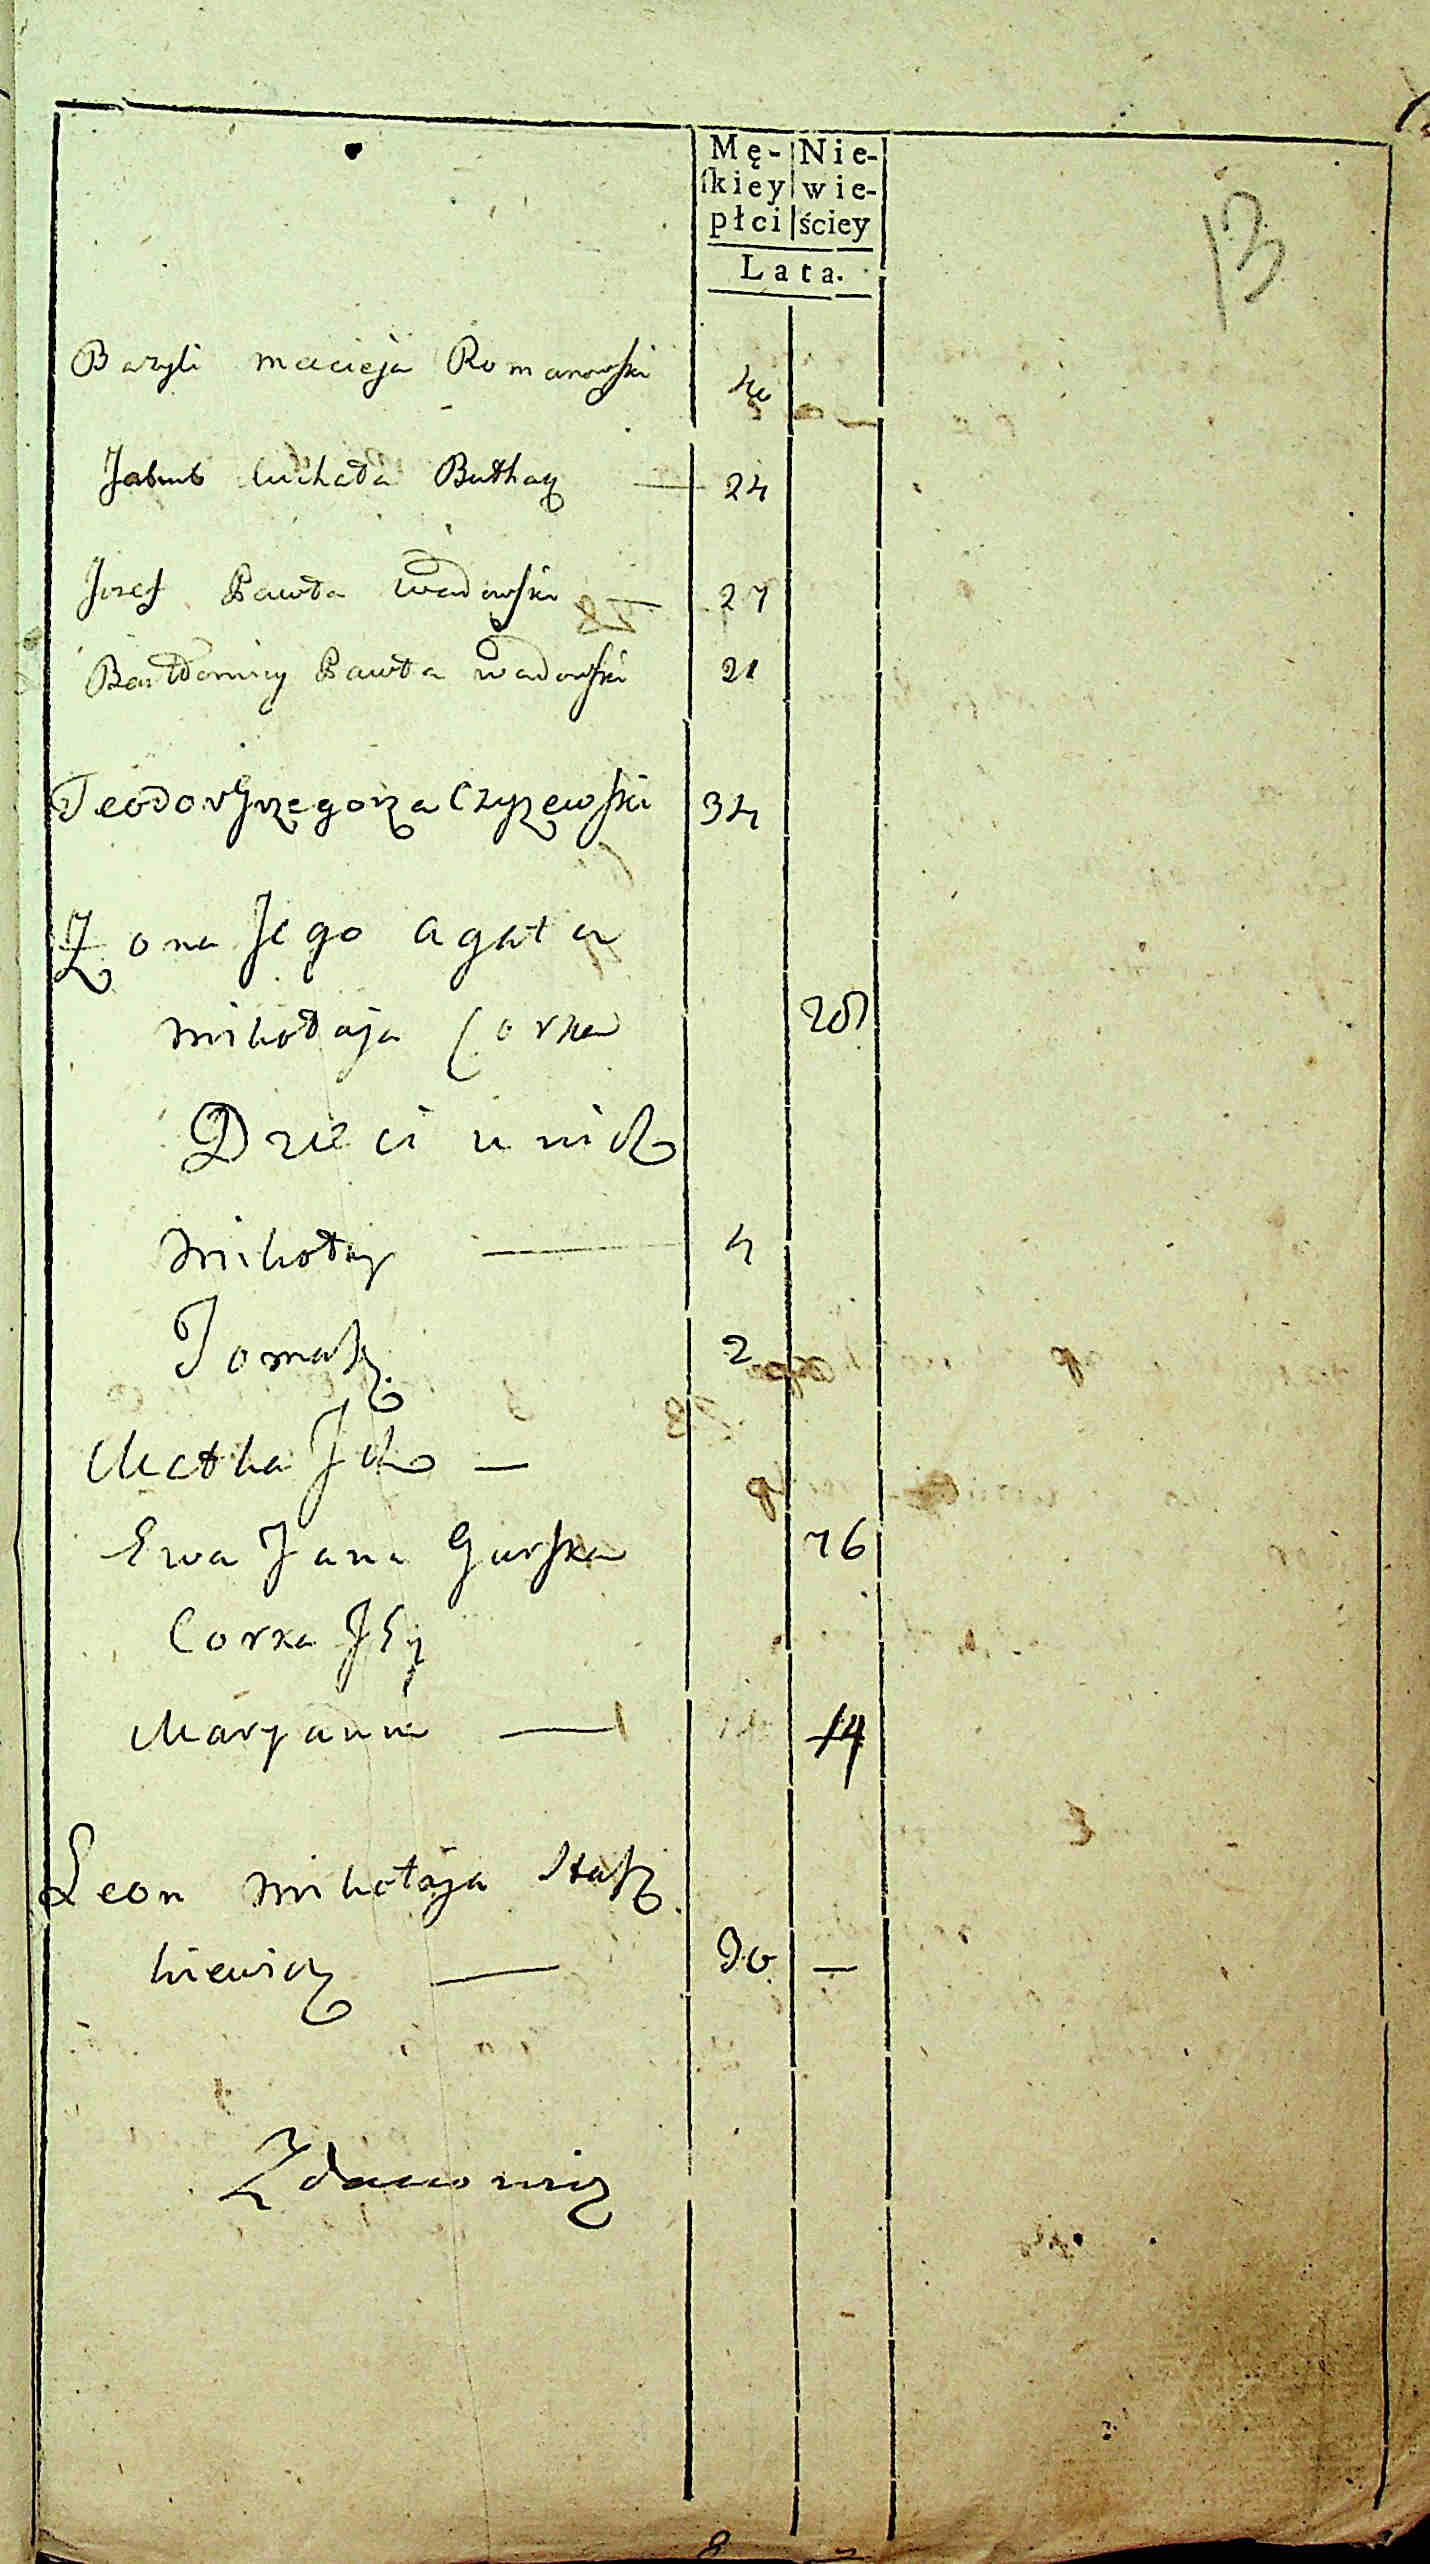 Mę- Nie-
skiey wie-
płci ściey
Lata.
13
Bazyli Macieja Romanowski 40
Jakub Michała 24
Jozef Pawła Wadowski — 27
Bartłomiey Pawła Wadowski 21
Teodor Grzegorza Czyzewski 34
Zona Jego Agata
Mikołaja Corka 28
Dzieci u nich
Mikołay — 4
Tomasz 2
Matka Ich —
Ewa Jana Gurska 76
Corka Jey
Maryanna — 14
Leon Mikołaja Stasz
kiewicz — 30 —
Zdanowicz
8